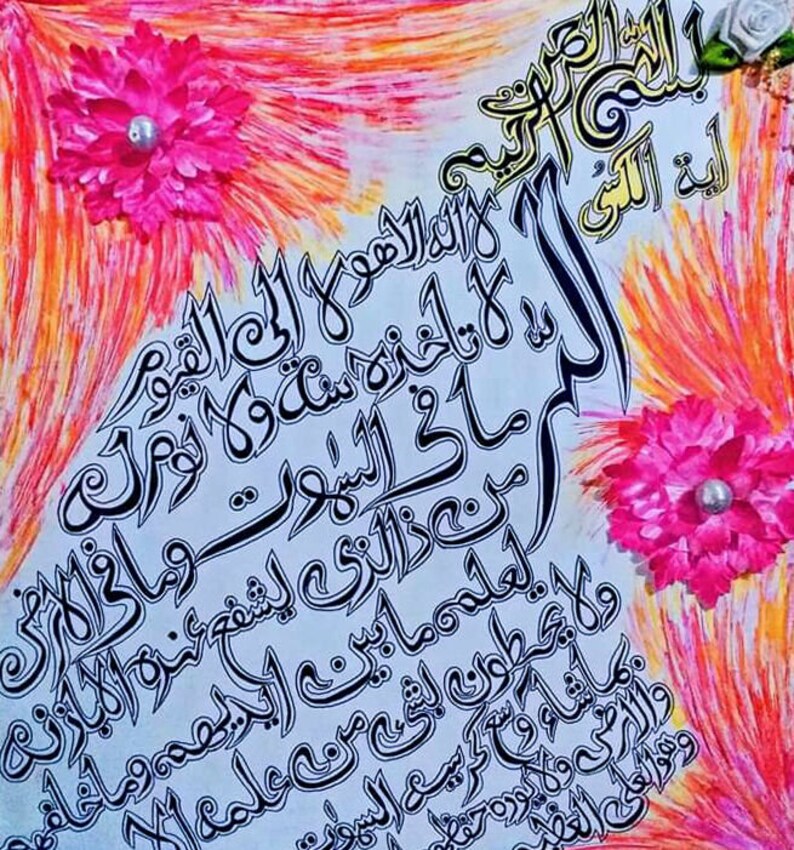 بسم الله الرحمن الرحيم
اية الكرسى
الله لا اله الا هو لا الى القيوم
لا تاخذه سنة ولا نوم له
ما فى السمٰوت وما فى الارض
من ذا الذى يشفع عنده الا بازنه
يعلم ما بين ايديهم وما خلفهم
ولا يحيطون بشىء من علمه الا
بما شاء وسع كرسيه السمٰوت
والارض ولا يوده
وهو العلى العظيم